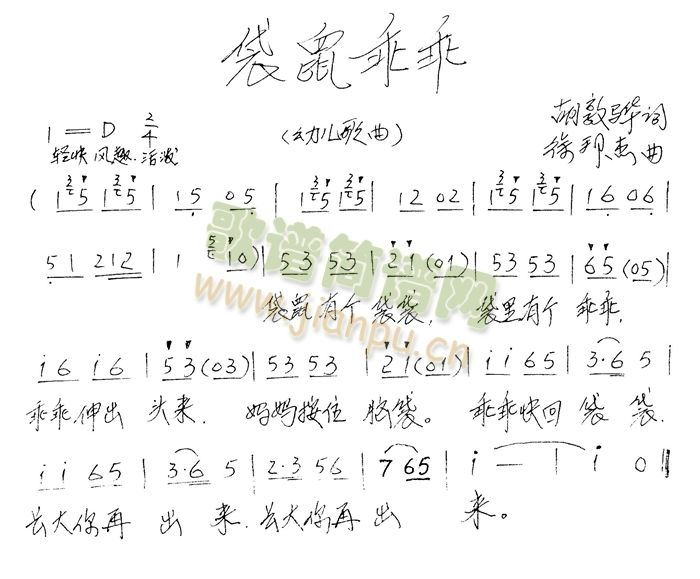 袋鼠乖乖
1=D 2/4
(幼儿歌曲)
胡敦骅词
轻快 风趣.活泼
徐邦杰曲
( 1 3 5 1 3 5 | 1 5 0 5 | 1 3 5 1 3 5 | 1 2 0 2 | 1 3 5 1 3 5 | 1 6 0 6 |
5 1 2 1 2 | 1 5 1 0 ) | 5 3 5 3 | 2 1 (0 1) | 5 3 5 3 | 6 5 (0 5) |
袋鼠有个袋袋, 袋里有个乖乖,
i 6 i 6 | 5 3 (0 3) | 5 3 5 3 | 2 1 (0 1) | i i 6 5 | 3·6 5 |
乖乖伸出头来. 妈妈按住胸袋。乖乖快回袋袋.
i i 6 5 | 3·6 5 | 2·3 5 6 | 7 6 5 | i — | i 0 ‖
长大你再出来.长大你再出来。
歌谱简谱网
www.jianpu.cn